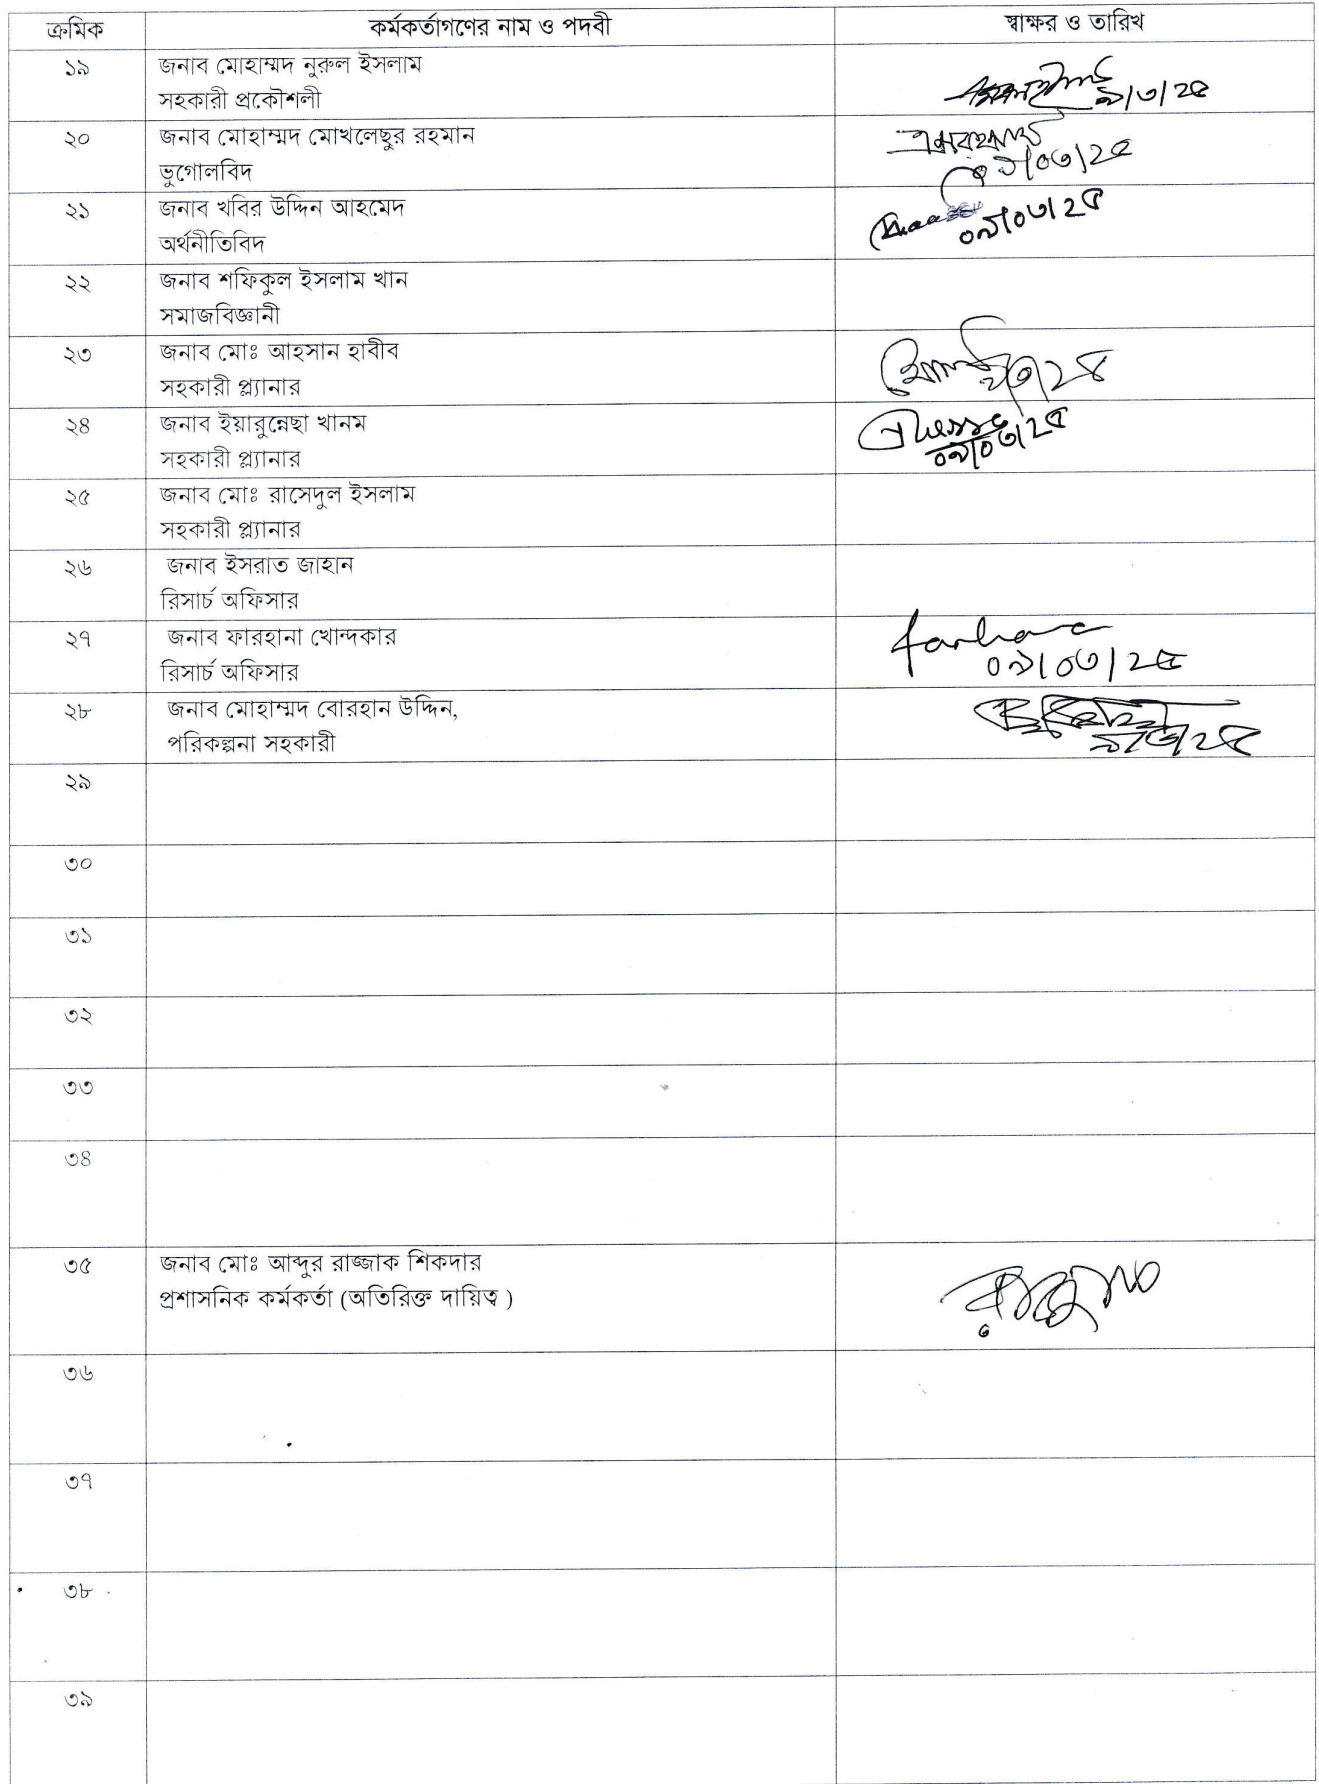 ক্রমিক কর্মকর্তাগণের নাম ও পদবী স্বাক্ষর ও তারিখ
১৯ জনাব মোহাম্মদ নুরুল ইসলাম
সহকারী প্রকৌশলী ৯/৩/২৫
২০ জনাব মোহাম্মদ মোখলেছুর রহমান
ভুগোলবিদ ০৯/০৩/২৫
২১ জনাব খবির উদ্দিন আহমেদ
অর্থনীতিবিদ ০৯/০৩/২৫
২২ জনাব শফিকুল ইসলাম খান
সমাজবিজ্ঞানী
২৩ জনাব মোঃ আহসান হাবীব
সহকারী প্ল্যানার ৯/৩/২৫
২৪ জনাব ইয়ারুন্নেছা খানম
সহকারী প্ল্যানার ০৯/০৩/২৫
২৫ জনাব মোঃ রাসেদুল ইসলাম
সহকারী প্ল্যানার
২৬ জনাব ইসরাত জাহান
রিসার্চ অফিসার
২৭ জনাব ফারহানা খোন্দকার farhana
রিসার্চ অফিসার ০৯/০৩/২৫
২৮ জনাব মোহাম্মদ বোরহান উদ্দিন,
পরিকল্পনা সহকারী ৯/৩/২৫
২৯
৩০
৩১
৩২
৩৩
৩৪
৩৫ জনাব মোঃ আব্দুর রাজ্জাক শিকদার
প্রশাসনিক কর্মকর্তা (অতিরিক্ত দায়িত্ব )
৩৬
৩৭
৩৮
৩৯